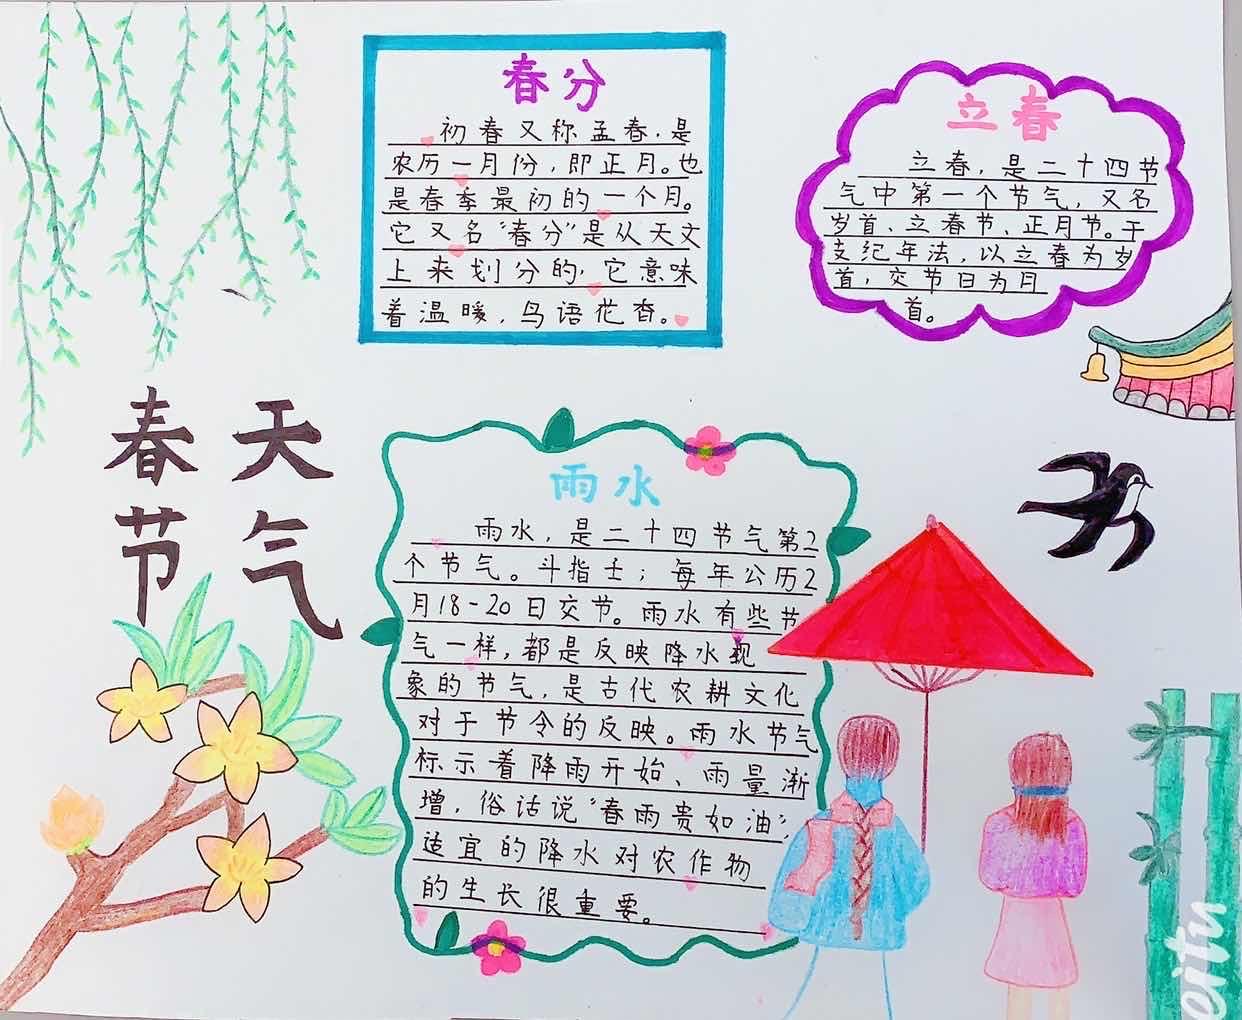 春分
初春又称孟春，是
农历一月份，即正月。也
是春季最初的一个月。
它又名“春分”是从天文
上来划分的，它意味
着温暖，鸟语花香。
立春
立春，是二十四节
气中第一个节气，又名
岁首、立春节、正月节。干
支纪年法，以立春为岁
首，交节日为月
首。
春天
节气
雨水
雨水，是二十四节气第2
个节气。斗指壬；每年公历2
月18-20日交节。雨水有些节
气一样，都是反映降水现
象的节气，是古代农耕文化
对于节令的反映。雨水节气
标示着降雨开始、雨量渐
增，俗话说“春雨贵如油”，
适宜的降水对农作物
的生长很重要。
eitu